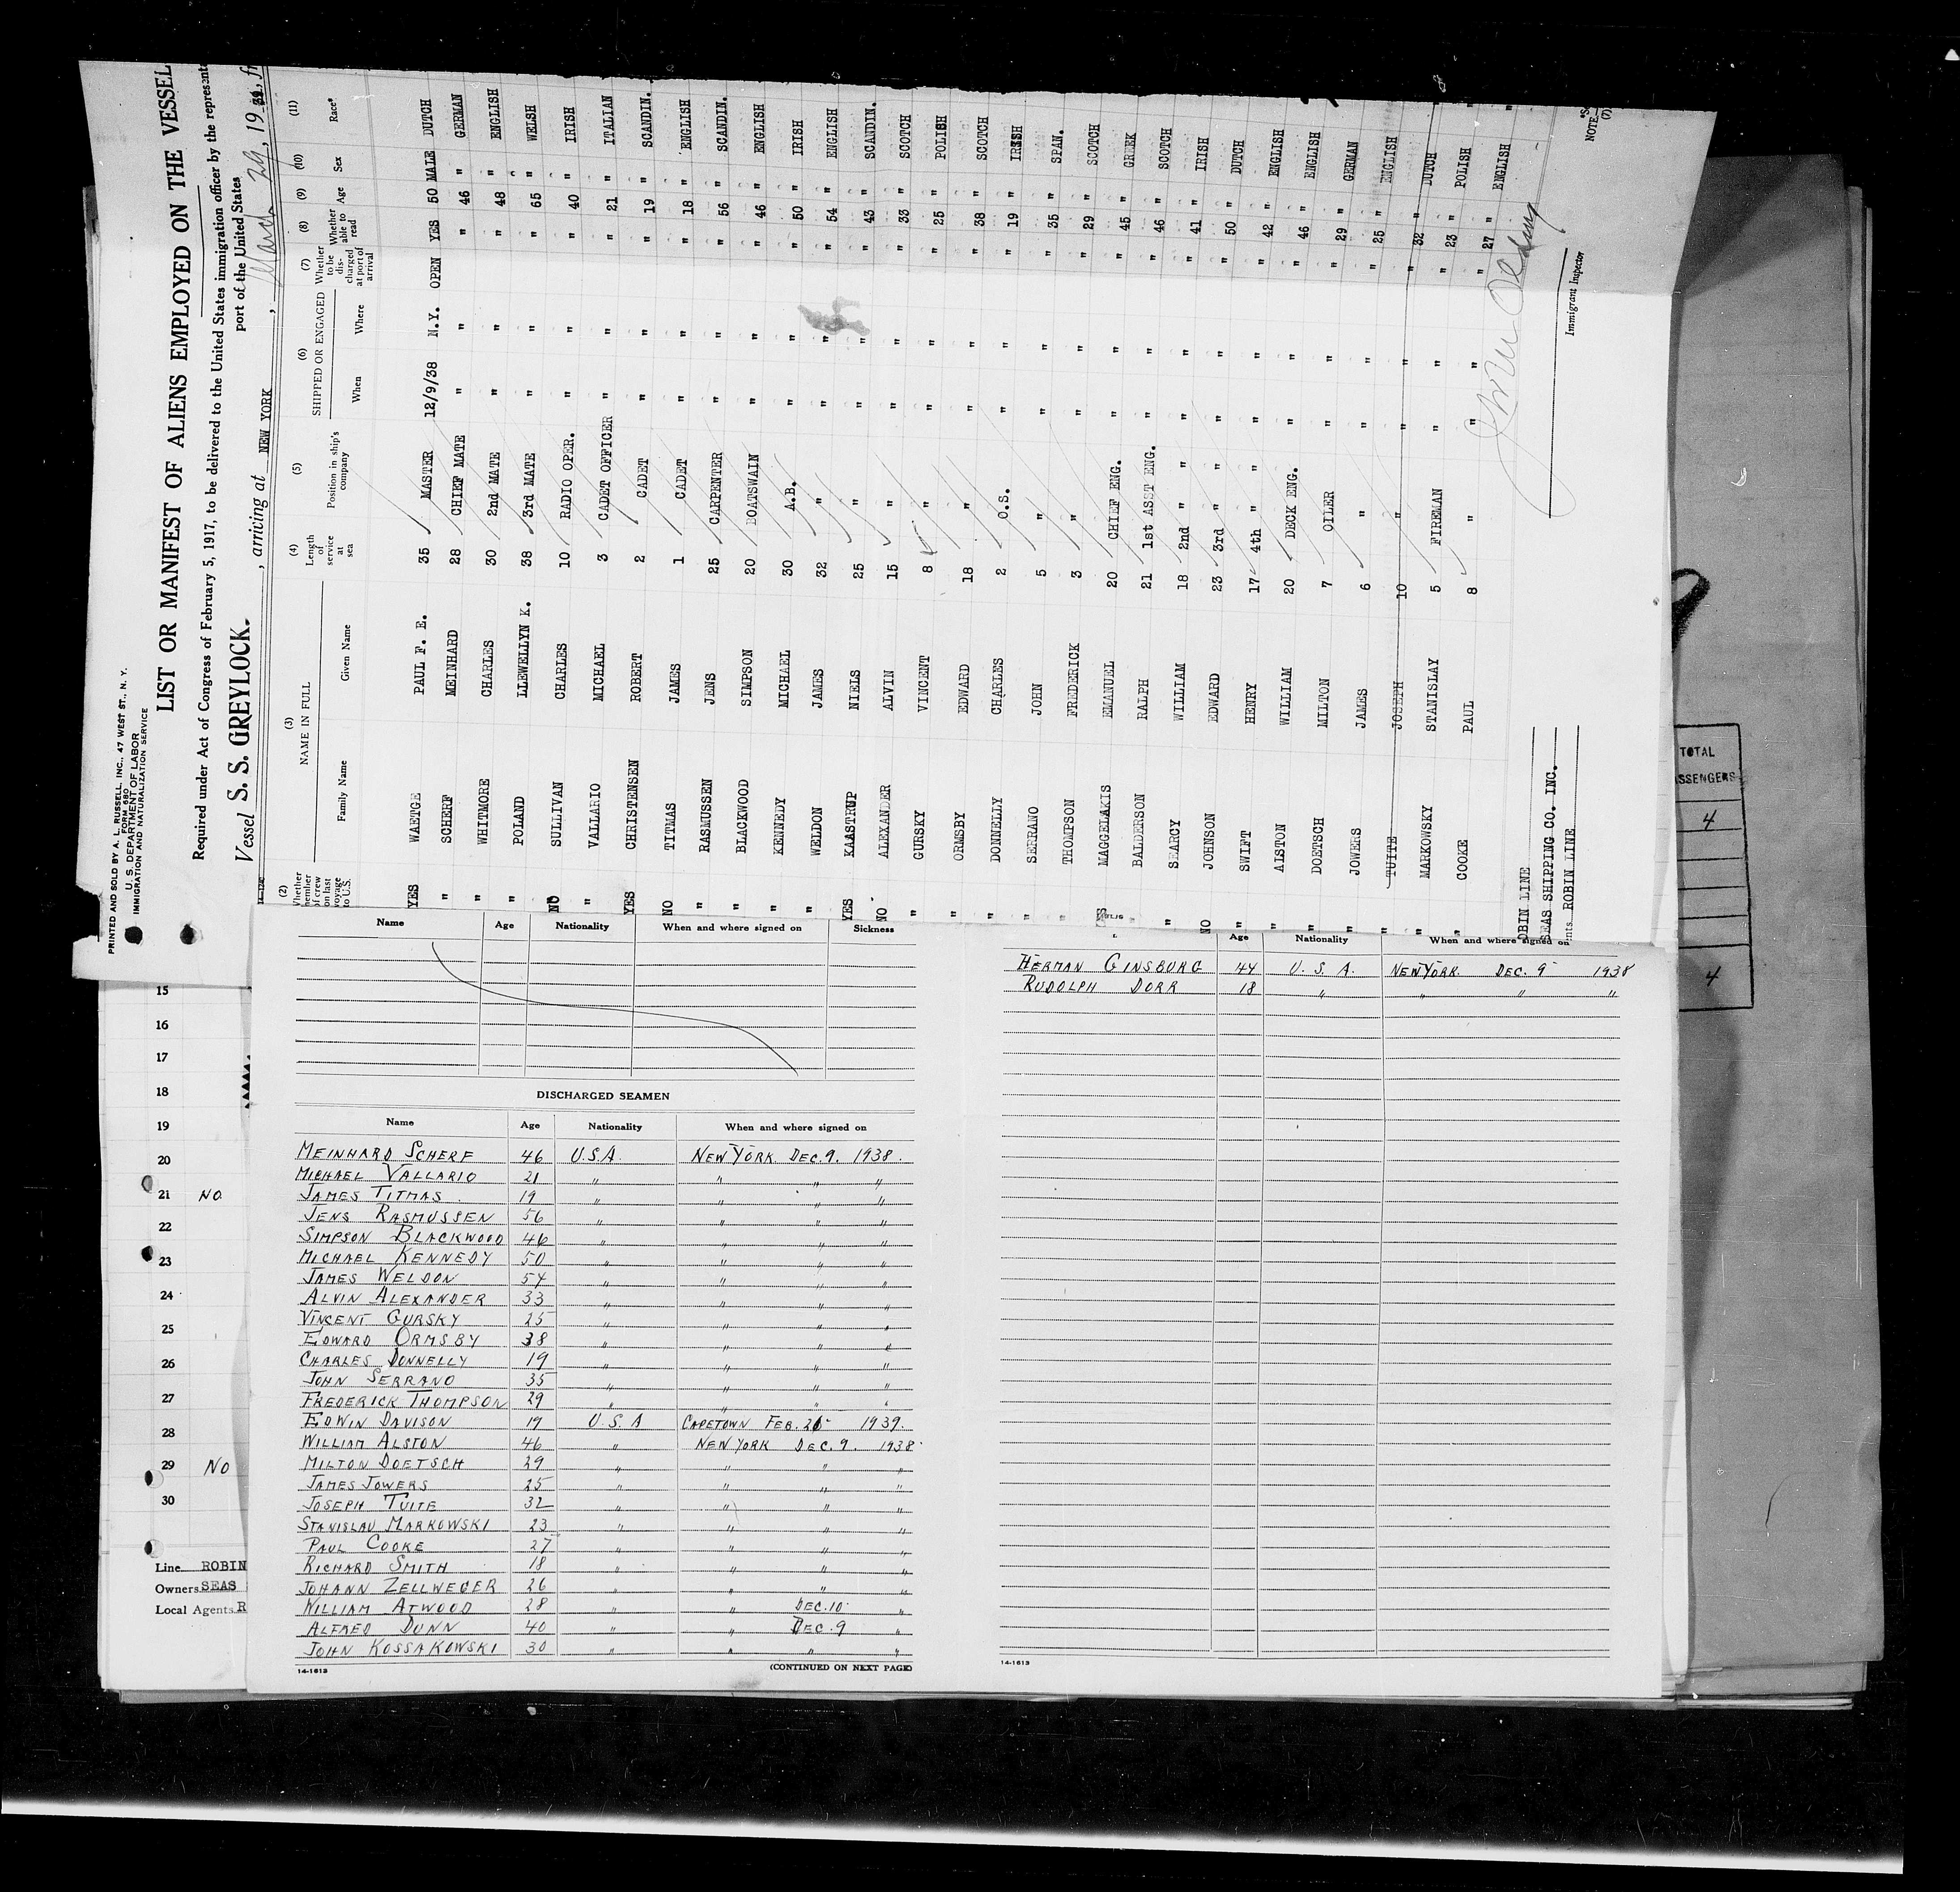 PRINTED AND SOLD BY A. L. RUSSELL, INC., 47 WEST ST., N. Y.
FORM 680
U. S. DEPARTMENT OF LABOR
IMMIGRATION AND NATURALIZATION SERVICE
LIST OR MANIFEST OF ALIENS EMPLOYED ON THE VESSEL
Required under Act of Congress of February 5, 1917, to be delivered to the United States immigration officer by the representa
port of the United States
Vessel S. S. GREYLOCK. , arriving at NEW YORK , March 29, 19 39, fr
(2) (3) (4) (5) (6) (7) (8) (9) (10) (11)
Whether member of crew on last voyage to U.S. NAME IN FULL Length of service at sea Position in ship's company SHIPPED OR ENGAGED Whether to be discharged at port of arrival Whether able to read Age Sex Race*
Family Name Given Name When Where
YES WAETGE PAUL F. E. 35 MASTER 12/9/38 N.Y. OPEN YES 50 MALE DUTCH
" SCHERF MEINHARD 28 CHIEF MATE " " " " 46 " GERMAN
" WHITMORE CHARLES 30 2nd MATE " " " " 48 " ENGLISH
" POLAND LLEWELLYN K. 38 3rd MATE " " " " 65 " WELSH
NO SULLIVAN CHARLES 10 RADIO OPER. " " " " 40 " IRISH
" VALLARIO MICHAEL 3 CADET OFFICER " " " " 21 " ITALIAN
YES CHRISTENSEN ROBERT 2 CADET " " " " 19 " SCANDIN.
NO TITMAS JAMES 1 CADET " " " " 18 " ENGLISH
" RASMUSSEN JENS 25 CARPENTER " " " " 56 " SCANDIN.
" BLACKWOOD SIMPSON 20 BOATSWAIN " " " " 46 " ENGLISH
" KENNEDY MICHAEL 30 A.B. " " " " 50 " IRISH
" WELDON JAMES 32 " " " " " 54 " ENGLISH
YES KAASTRUP NIELS 25 " " " " " 43 " SCANDIN.
NO ALEXANDER ALVIN 15 " " " " " 33 " SCOTCH
" GURSKY VINCENT 8 " " " " " 25 " POLISH
" ORMSBY EDWARD 18 " " " " " 38 " SCOTCH
" DONNELLY CHARLES 2 O.S. " " " " 19 " IRISH
" SERRANO JOHN 5 " " " " " 35 " SPAN.
" THOMPSON FREDERICK 3 " " " " " 29 " SCOTCH
YES MAGGELAKIS EMANUEL 20 CHIEF ENG. " " " " 45 " GREEK
" BALDERSON RALPH 21 1st ASST ENG. " " " " 46 " SCOTCH
" SEARCY WILLIAM 18 2nd " " " " " " 41 " IRISH
NO JOHNSON EDWARD 23 3rd " " " " " " 50 " DUTCH
" SWIFT HENRY 17 4th " " " " " " 42 " ENGLISH
" ALSTON WILLIAM 20 DECK ENG. " " " " 46 " ENGLISH
" DOETSCH MILTON 7 OILER " " " " 29 " GERMAN
" JOWERS JAMES 6 " " " " " 25 " ENGLISH
" TUITE JOSEPH 10 " " " " " 32 " DUTCH
" MARKOWSKY STANISLAY 5 FIREMAN " " " " 23 " POLISH
" COOKE PAUL 8 " " " " " 27 " ENGLISH
OBIN LINE
SEAS SHIPPING CO. INC.
nts ROBIN LINE
Immigrant Inspector
NOTE
(7)
TOTAL
SSENGERS
4
4
Name Age Nationality When and where signed on Sickness
DISCHARGED SEAMEN
Name Age Nationality When and where signed on
MEINHARD SCHERF 46 U.S.A. NEW YORK DEC. 9. 1938.
MICHAEL VALLARIO 21 " " " "
JAMES TITMAS 19 " " " "
JENS RASMUSSEN 56 " " " "
SIMPSON BLACKWOOD 46 " " " "
MICHAEL KENNEDY 50 " " " "
JAMES WELDON 54 " " " "
ALVIN ALEXANDER 33 " " " "
VINCENT GURSKY 25 " " " "
EDWARD ORMSBY 38 " " " "
CHARLES DONNELLY 19 " " " "
JOHN SERRANO 35 " " " "
FREDERICK THOMPSON 29 " " " "
EDWIN DAVISON 19 U.S.A CAPETOWN FEB. 1939.
WILLIAM ALSTON 46 " NEW YORK DEC. 9. 1938
MILTON DOETSCH 29 " " " "
JAMES JOWERS 25 " " " "
JOSEPH TUITE 32 " " " "
STANISLAU MARKOWSKI 23 " " " "
PAUL COOKE 27 " " " "
RICHARD SMITH 18 " " " "
JOHANN ZELLWEGER 26 " " " "
WILLIAM ATWOOD 28 " " DEC. 10 "
ALFRED DUNN 40 " " DEC. 9 "
JOHN KOSSAKOWSKI 30 " " " "
14-1613 (CONTINUED ON NEXT PAGE)
Age Nationality When and where signed on
HERMAN GINSBURG 44 U. S. A. NEW YORK DEC. 9 1938
RUDOLPH DORR 18 " " " "
14-1613
15
16
17
18
19
20
21 NO
22
23
24
25
26
27
28
29 NO
30
Line ROBIN
Owners SEAS
Local Agents R